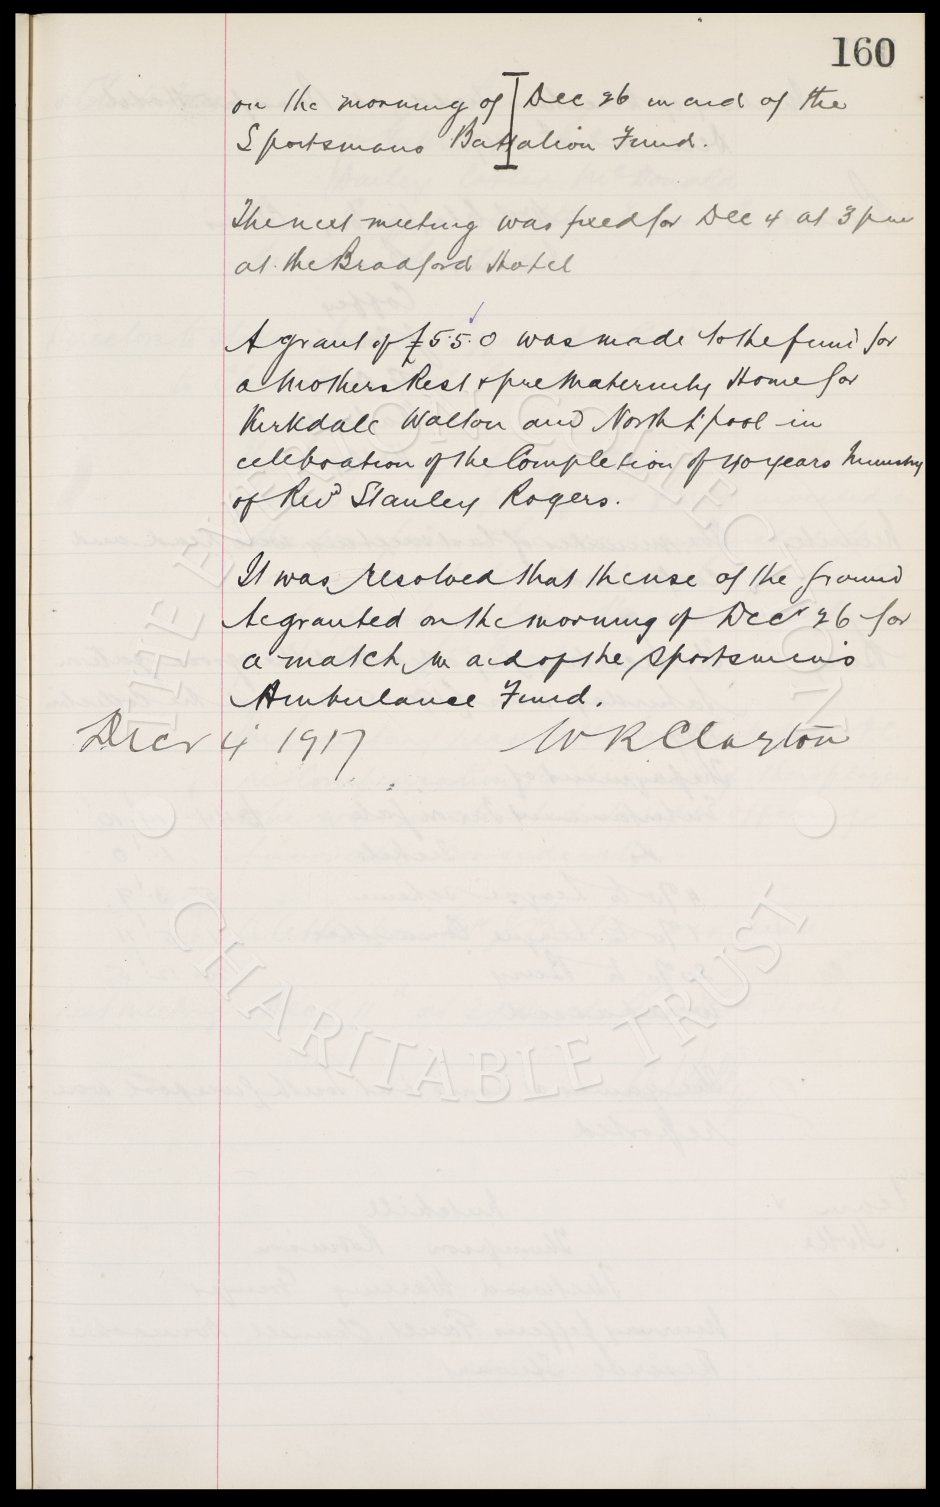 160
on the morning of Dec 26 in aid of the
Sportsmans Battalion Fund.
The next meeting was fixed for Dec 4 at 3 pm
at the Bradford Hotel
A grant of £5.5.0 was made to the fund for
a Mothers Rest & pre Maternity Home for
Kirkdale Walton and North L'pool in
celebration of the Completion of 40 years Ministry
of Revd Stanley Rogers.
It was resolved that the use of the ground
be granted on the morning of Decr 26 for
a match in aid of the Sportsmen's
Ambulance Fund.
Decr 4 1917 W R Clayton
THE EVERTON COLLECTION
CHARITABLE TRUST